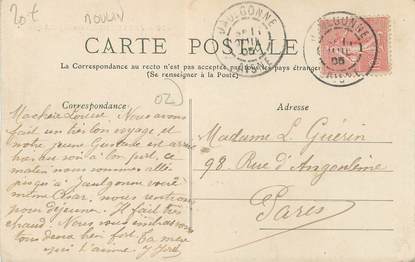 20 t
MOULIN
JAULGONNE
05
AISNE
JAULGONNE
05
AISNE
CARTE POSTALE
La Correspondance au recto n'est pas acceptée par tous les pays étrangers
(Se renseigner à la Poste)
Correspondance
02
Adresse
Ma chère Louise Nous avons
fait un très bon voyage et
notre jeune Gustave est arrivé
à bon port, ce
matin nous sommes allés
jusqu'à Jaulgonne voir
mème nous rentrons
pour déjeuner. Il fait très
chaud. Nous vous embrassons
tous deux bien fort. Ta mère
qui t'aime
Madame L. Guérin
98 Rue d'Angoulême
Paris